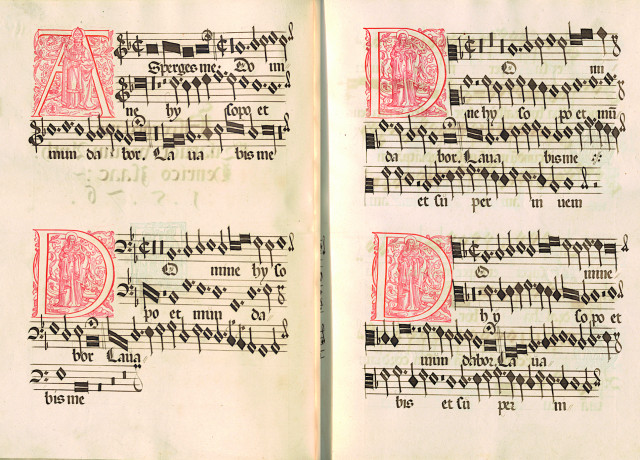 Asperges me: Do mi
ne hy sopo et
mun da bor. La ua bis me
D O mine hy so
po et mun da
bor Laua
bis me
D O mi
ne hy so po et mū
da bor. Laua bis me
et su per in uem
D O mine
hy so po et
mun dabor. La ua
bis et su per in